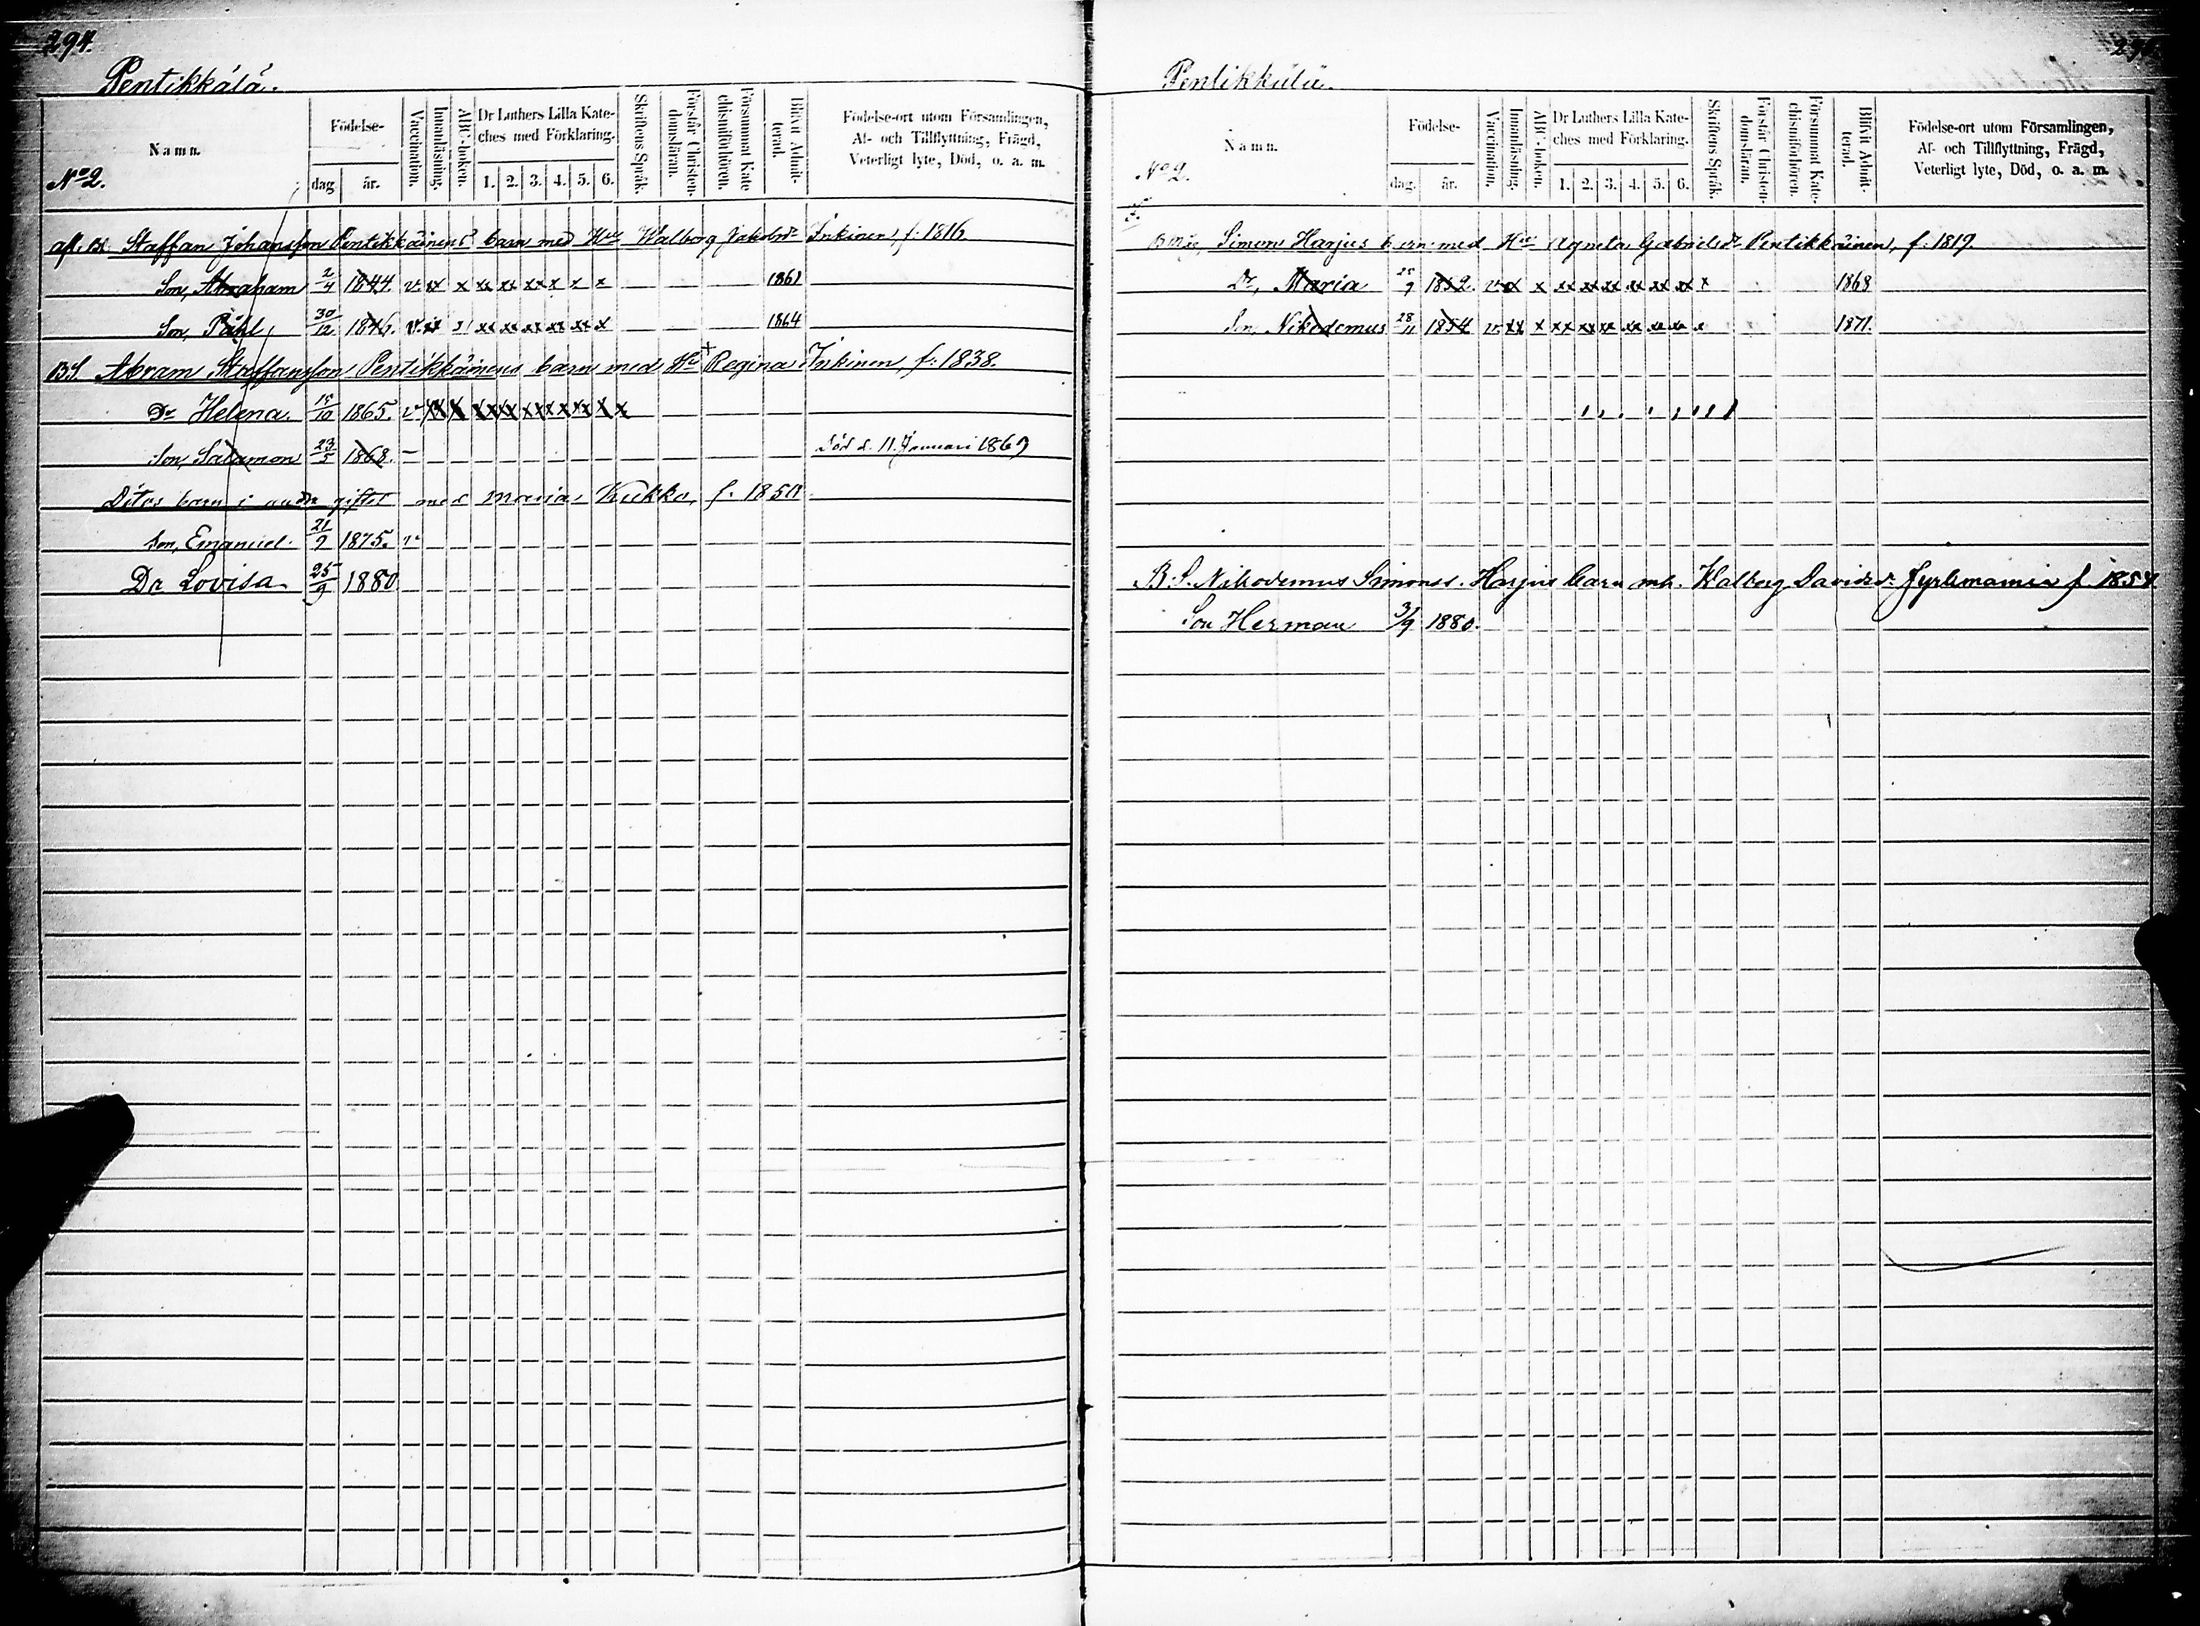 294.
Pentikkälä.
Namn.
Födelse-
dag. år.
Vaccination.
Innanläsning.
ABC-boken.
Dr Luthers Lilla Kate-
ches med Förklaring.
1. 2. 3. 4. 5. 6.
Skriftens Språk.
Förstår Christen-
domsläran.
Försummat Kate
chismiförhören.
Blifvit Admit-
terad.
Födelse-ort utom Församlingen,
Af- och Tillflyttning, Frägd,
Veterligt lyte, Död, o. a. m.
No 2.
afl. Bd. Staffan Johansson Pentikkäinens barn med Hu Walborg Jakobsdr Inkinen, f. 1816
Son, Abraham 2/4 1844. v. xx x xx xx xx x x x 1861
Son, Påhl, 30/12 1846. v. xx xx xx xx xx xx x 1864
BS. Abram Staffansson Pentikkäinens barn med Hu + Regina Inkinen, f. 1838.
Dr Helena. 15/10 1865. v
Son, Salamon 23/5 1868. — död d. 11 Januari 1869
Ditos barn i andra giftet med Maria Kukko, f. 1850
Son, Emanuel. 21/9 1875. v
Dr Lovisa 25/9 1880.
Pentikkälä.
Namn.
Födelse-
dag. år.
Vaccination.
Innanläsning.
ABC-boken.
Dr Luthers Lilla Kate-
ches med Förklaring.
1. 2. 3. 4. 5. 6.
Skriftens Språk.
Förstår Christen-
domsläran.
Försummat Kate-
chismiförhören.
Blifvit Admit-
terad.
Födelse-ort utom Församlingen,
Af- och Tillflyttning, Frägd,
Veterligt lyte, Död, o. a. m.
No 2.
Simon Harjus barn med Hu Agneta Gabrielsdr Pentikkäinen, f. 1819
Dr, Maria 1852 v xx x xx xx xx xx xx xx x 1868
Son, Nikodemus 28/11 1854 v xx x xx xx xx xx xx xx x 1871.
B. S. Nikodemus Simonss. Harjus barn mh. Walborg Davidsdr f. 1854
Son Herman 3/9 1880.